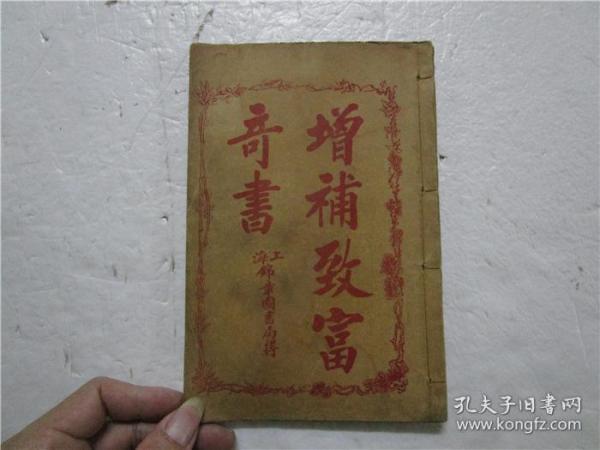 增補致富
奇書
上海錦章圖書局
孔夫子旧书网
www.kongfz.com